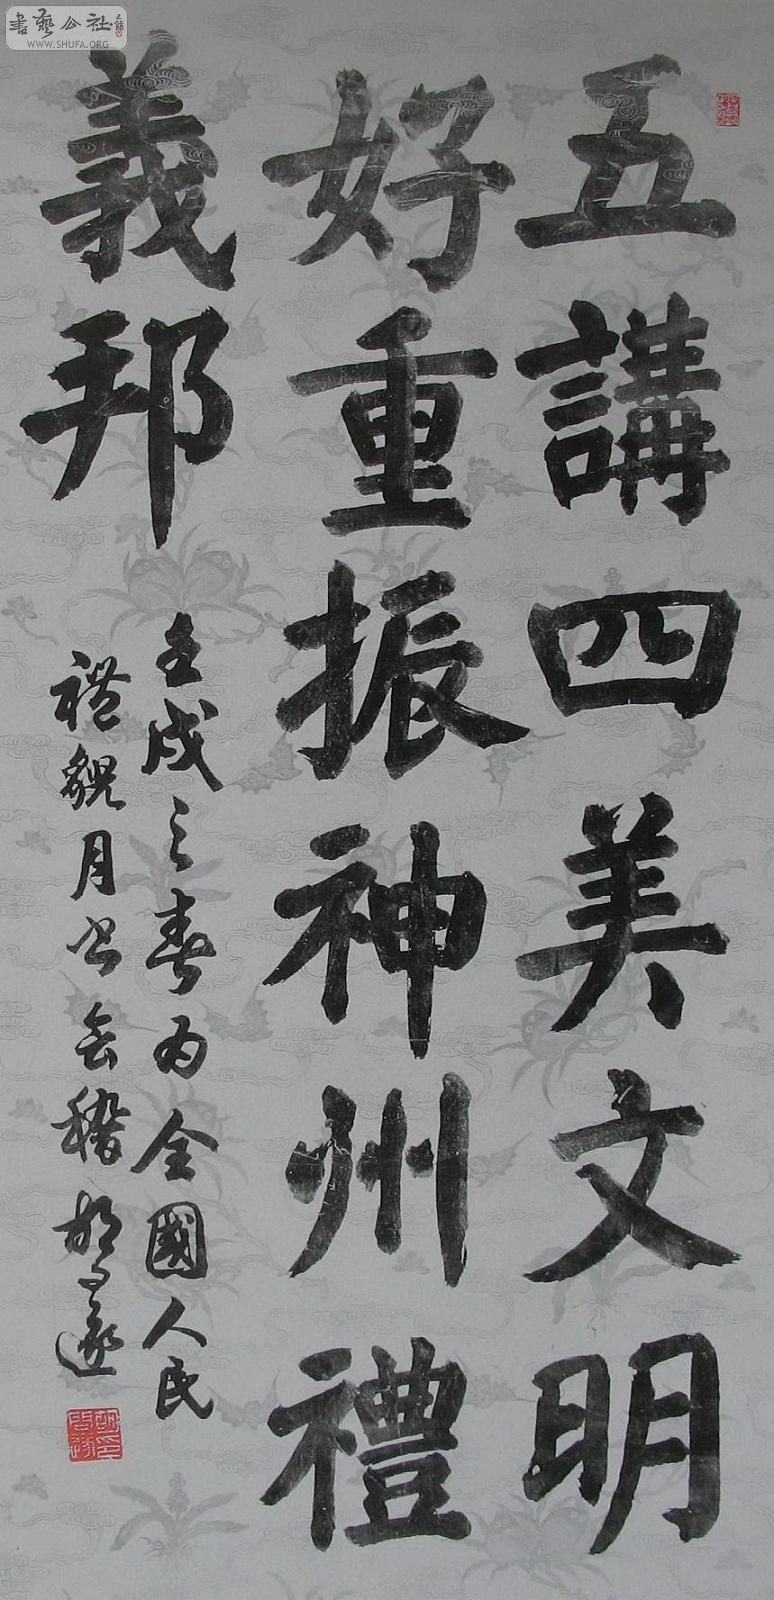 書藝公社
WWW.SHUFA.ORG
五講四美文明
好重振神州禮
義邦
壬戌之春为全國人民
禮貌月书会稽胡问遂